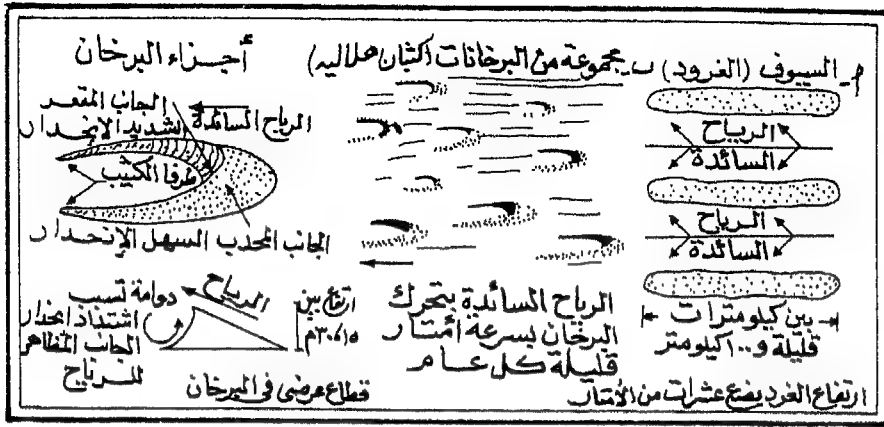 أ- السيوف (الغرود)
ب- مجموعة من البرخانات (كثبان هلاليه)
أجزاء البرخان
الرياح
السائدة
الرياح
السائدة
بين كيلومترات
قليلة و ١٠٠ كيلومتر
ارتفاع الغرد بضع عشرات من الأمتار
الرياح السائدة بتحرك
البرخان بسرعة أمتار
قليلة كل عام
الجانب المقعر
الشديد الإنحدار
الرياح السائدة
طرفا الكثيب
الجانب المحدب السهل الإنحدار
ارتفاع بين
١٥، ٣٠م
الرياح
دوامة تسبب
اشتداد انحدار
الجانب المظاهر
للرياح
قطاع عرضى فى البرخان